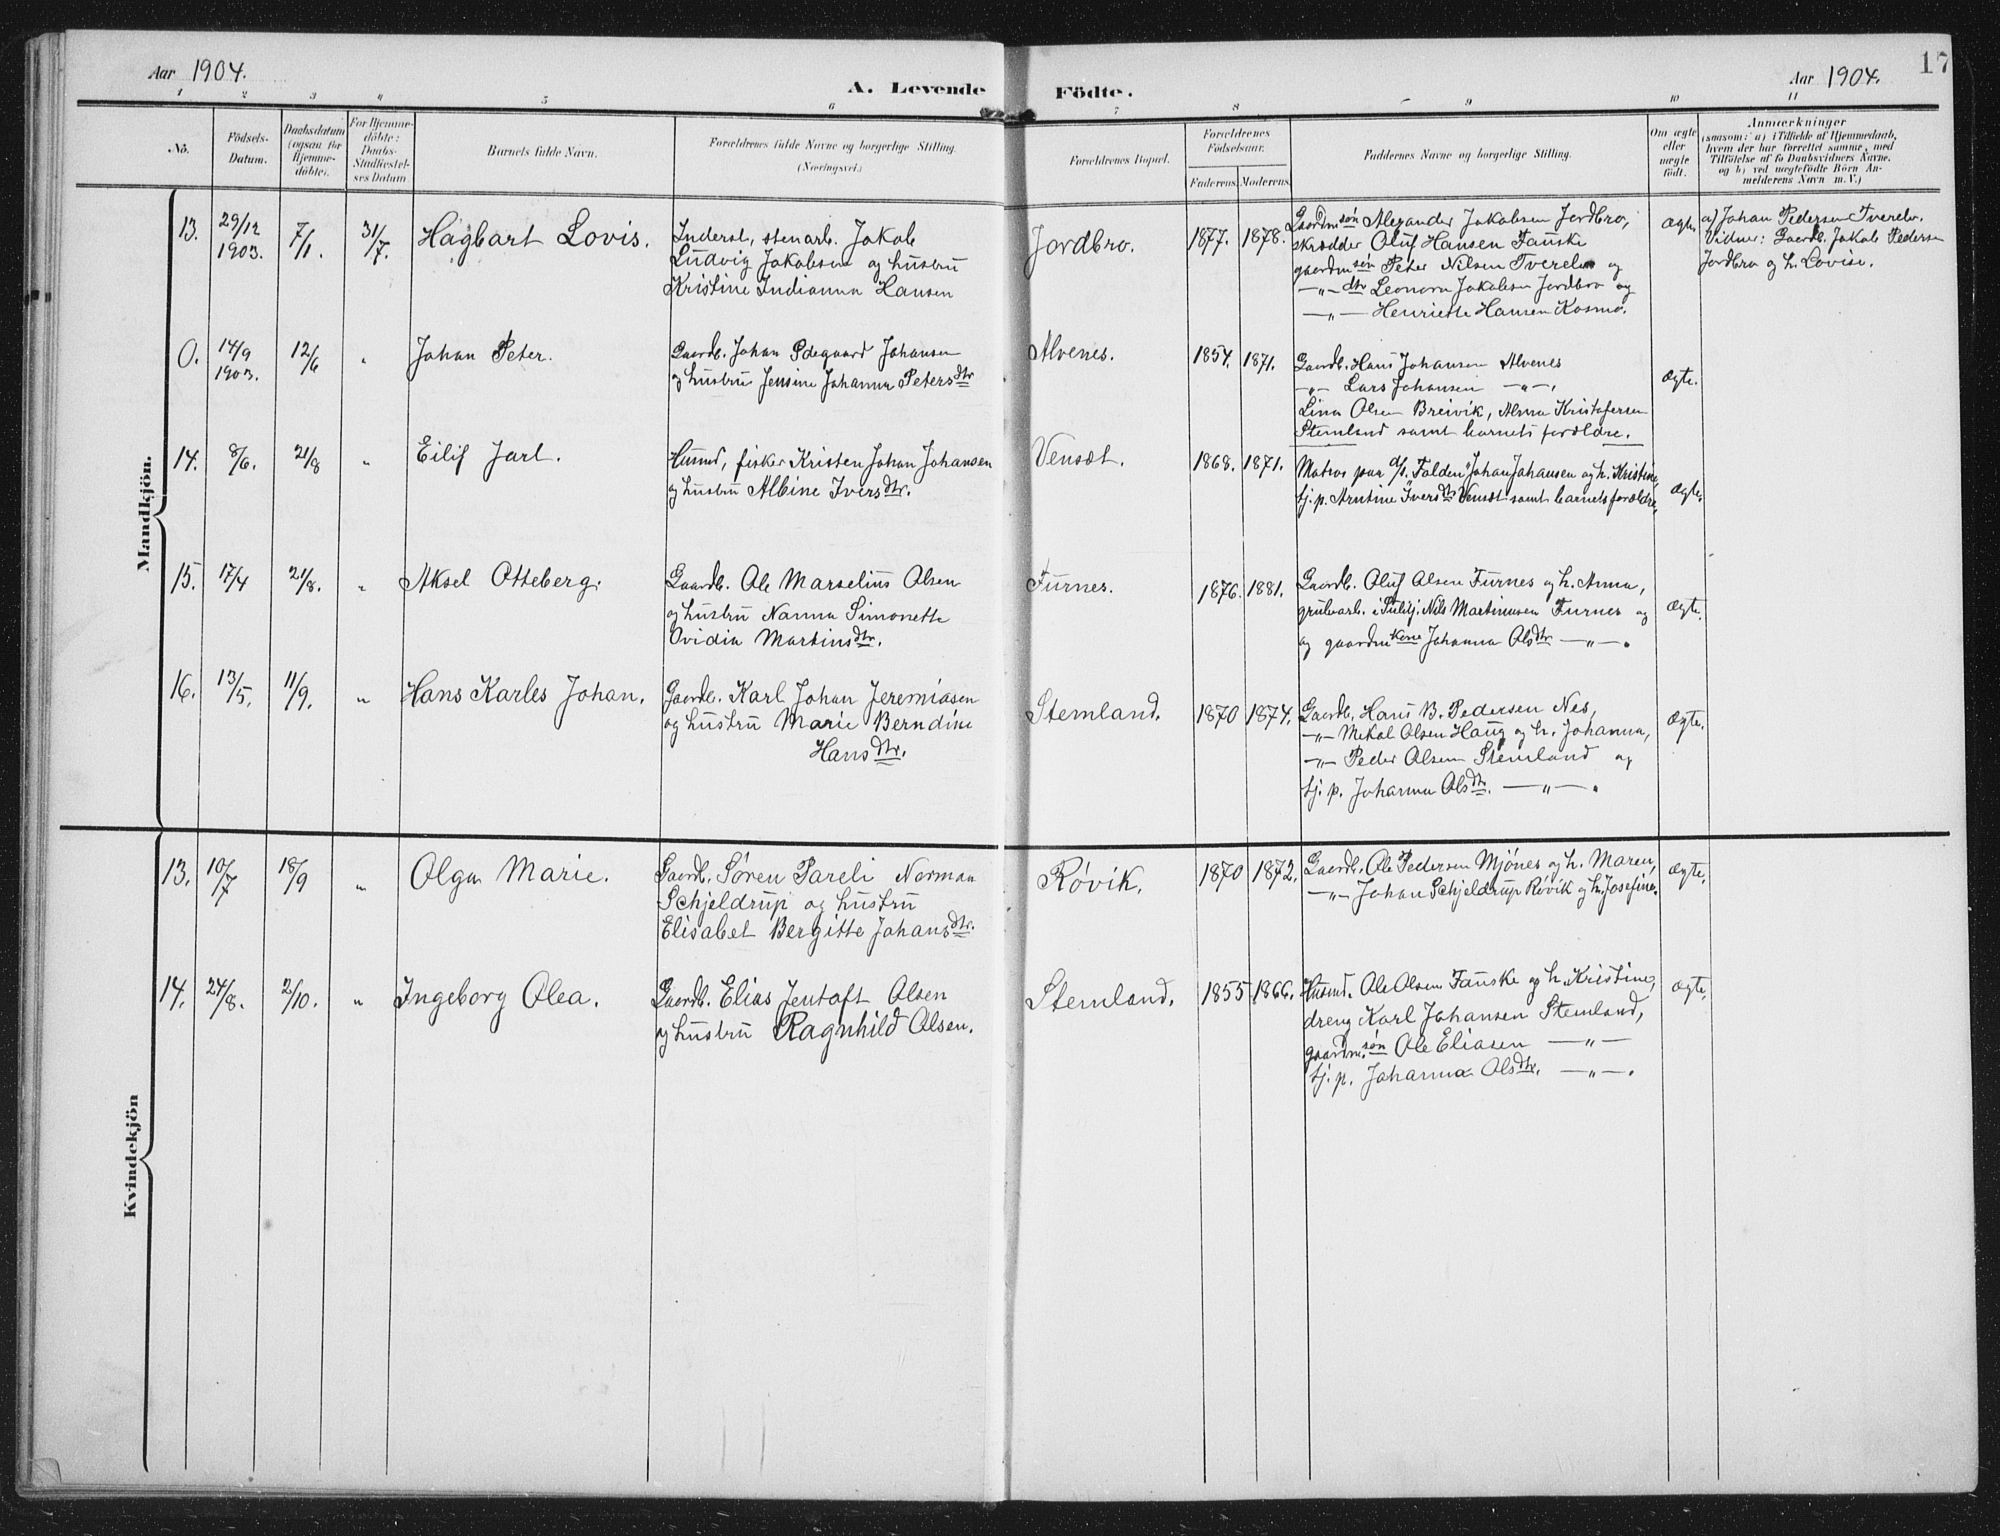 Aar 1904.
A. Levende Födte.
Aar 1904.
17
1 2 3 4 5 6 7 8 9 10 11
Nö.
Födsels-
Datum.
Daabsdatum
(ogsaa for
Hjemme-
döbte).
For Hjemme-
döbte:
Daabs-
Stadfæstel-
ses Datum
Barnets fulde Navn.
Forældrenes fulde Navne og borgerlige Stilling.
(Næringsvei.)
Forældrenes Bopæl.
Forældrenes
Födselsaar.
Faderens. Moderens.
Faddernes Navne og borgerlige Stilling.
Om ægte
eller
uægte
födt.
Anmærkninger
(saasom: a) i Tilfælde af Hjemmedaab,
hvem der har forrettet samme, med
Tilföielse af to Daabsvidners Navne,
og b) ved uægtefödte Börn An-
melderens Navn m. V.)
Mandkjön.
13.
29/12
1903.
7/1.
31/7.
Hagbart Lovis.
Inderst, stenarb. Jakob
Ludvig Jakobsen og hustru
Kristine Indianna Hansen
Jordbro.
1877. 1878.
Gaardm søn Alexander Jakobsen Jordbro,
skrædder Oluf Hansen Fauske
gaardm søn Peter Nilsen Tverelv og
—„— dtr Leonora Jakobsen Jordbro og
—„— Henriette Hansen Kosmo.
Ægte.
a) Johan Pedersen Tverelv.
Vidner: Gaardb. Jakob Pedersen
Jordbro og h. Lovise.
0.
14/9
1903.
12/6
„
Johan Peter.
Gaardb. Johan Ødegaard Johansen
og hustru Jensine Johanna Petersdtr
Alvenes.
1854. 1871.
Gaardb. Hans Johansen Alvenes
—„— Lars Johansen —„—,
Lina Olsen Breivik, Alma Kristofersen
Stemland samt barnets forældre.
Ægte.
14.
8/6.
21/8
„
Eilif Jarl.
Husmd, fisker Kristen Johan Johansen
og hustru Albine Iversdtr.
Vensæt.
1868. 1871.
Matros paa d/s. "Falden" Johan Johansen og h. Kristine,
tj. p. Arntine Iversdtr Vensæt samt barnets forældre,
Ægte.
15.
17/4
21/8.
„
Aksel Otteberg.
Gaardb. Ole Marselius Olsen
og hustru Nanna Simonette
Ovidia Martinsdtr.
Furnes.
1876. 1881.
Gaardb. Oluf Olsen Furnes og h. Anna,
grubearb. i Sulitj. Nils Martinusen Furnes og
og gaardm kone Johanna Olsdtr —„—.
Ægte.
16.
13/5.
11/9.
„
Hans Karles Johan.
Gaardb. Karl Johan Jeremiasen
og hustru Marie Berndine
Hansdtr.
Stemland.
1870 1874.
Gaardb. Hans B. Pedersen Nes,
—„— Mekal Olsen Haug og h. Johanna,
—„— Peder Olsen Stemland og
tj. p. Johanna Olsdtr. —„—.
Ægte.
Kvindekjön
13.
10/7
18/9
„
Olga Marie.
Gaardb. Søren Pareli Norman
Schjeldrup og hustru
Elisabet Bergitte Johansdtr.
Røvik.
1870 1872.
Gaardb. Ole Pedersen Mjönes og h. Maren,
—„— Johan Schjeldrup Røvik og h. Josefine.
Ægte.
14.
24/8.
2/10.
„
Ingeborg Olea.
Gaardb. Elias Jentoft Olsen
og hustru Ragnhild Olsen.
Stemland.
1855 1866.
Husmd. Ole Olsen Fauske og h. Kristine,
dreng Karl Johansen Stemland,
gaardm. søn Ole Eliasen —„—
tj. p. Johanna Olsdtr. —„—.
Ægte.